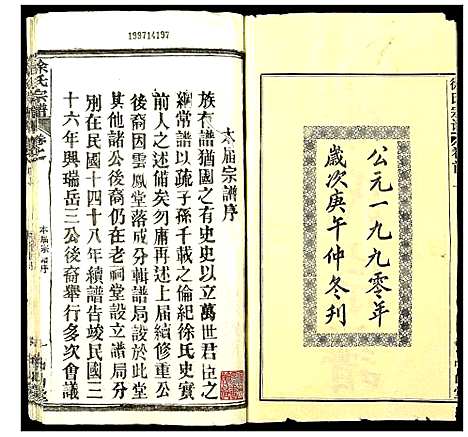 徐氏宗譜
公元一九九零年
歲次庚午仲冬刊
199714197
本屆宗譜序
族有譜猶國之有史史以立萬世君臣之
綱常譜以疏子孫千載之倫紀徐氏史實
前人之述備矣勿庸再述上屆續修重公
後裔因雲鳳堂落成分輯譜局設於此堂
其他諸公後裔仍在老祠堂設立譜局分
別在民國十四十八年續譜告竣民國三
十六年興瑞岳三公後裔舉行多次會議
徐氏宗譜
本屆宗譜序